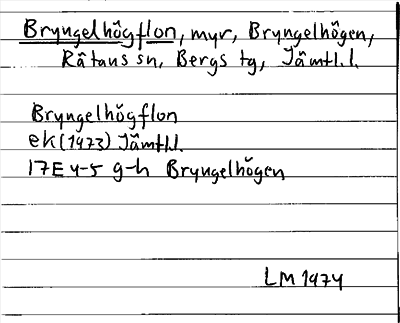 Bryngelhögflon, myr, Bryngelhögen,
Rätans sn, Bergs tg, Jämtl.l.
Bryngelhögflon
ek(1973) Jämtl.l.
17E 4-5 g-h Bryngelhögen
LM 1974